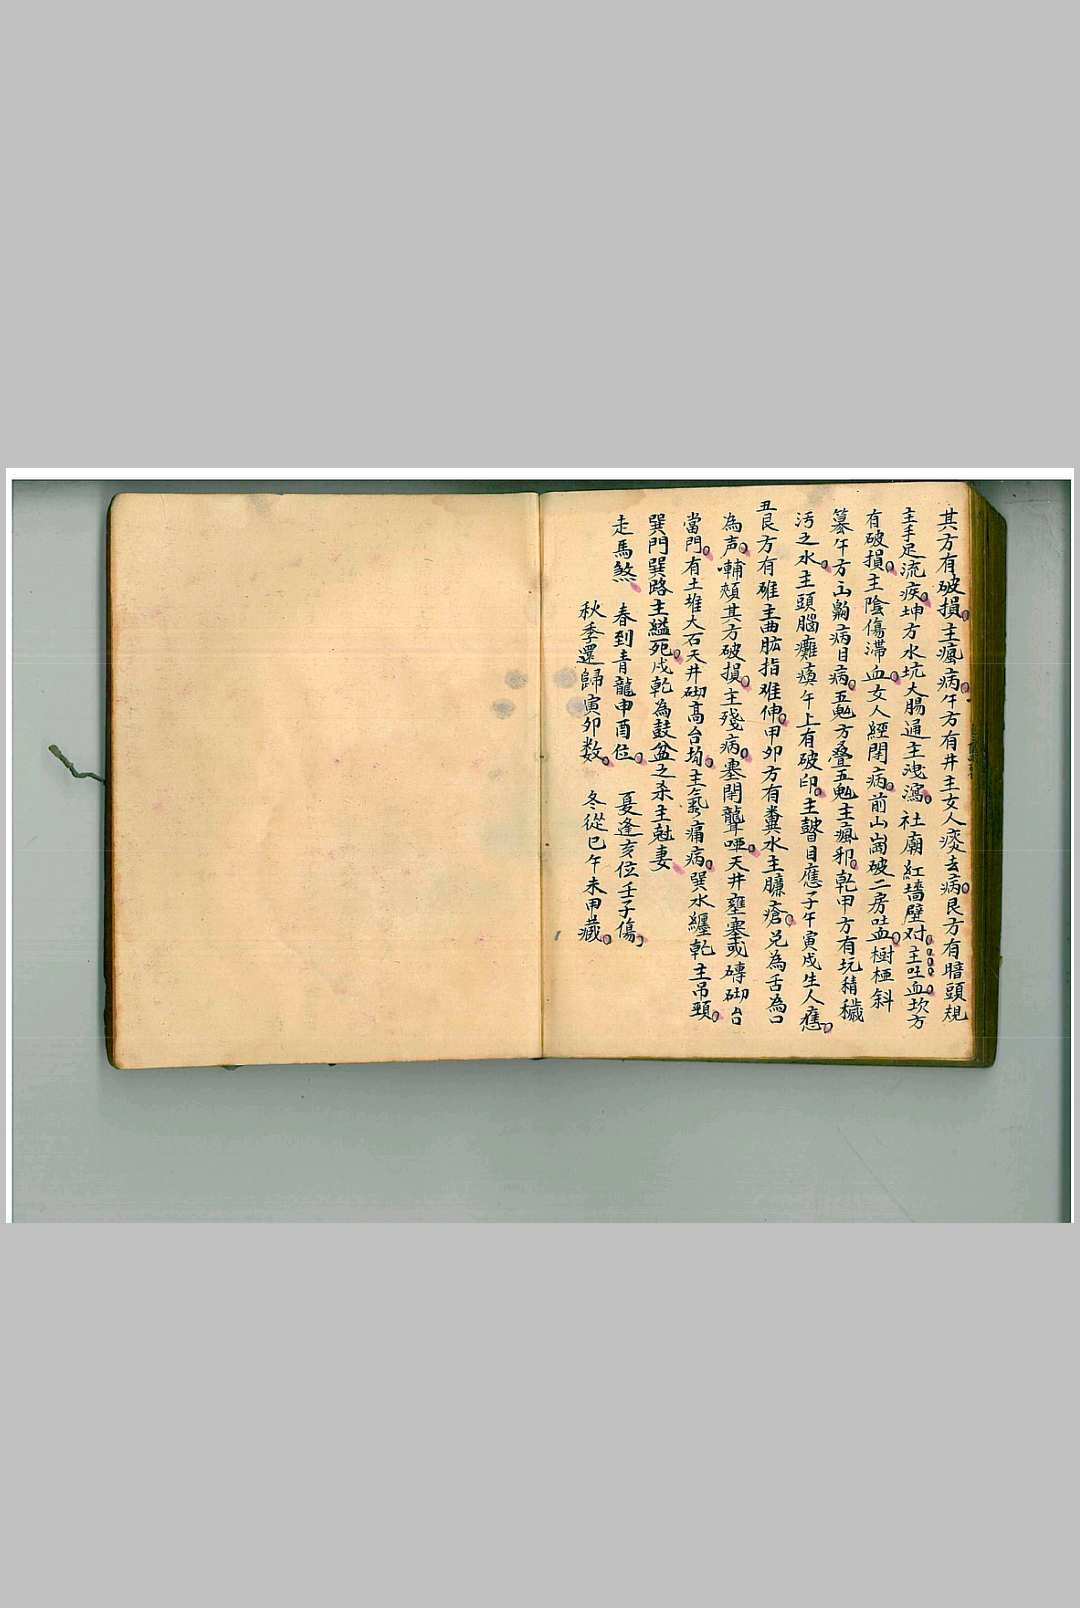 其方有破損。主瘋病。午方有井主女人痰去病。艮方有暗頭規
主手足流疾。坤方水坑大腸通主洩瀉。社廟紅墻壁对。主吐血。坎方
有破損。主陰傷滯血。女人經閉病。前山崗破二房吐血。樹極斜
篆午方山斷病目病。五鬼方叠五鬼主瘋邪。乾甲方有坑積穢
污之水。主頭腦癱瘓午上有破印。主瞽目應子午寅戌生人應。
丑艮方有碓主曲肱指难伸。甲卯方有糞水主臁瘡。兑為舌為口
為声。輔頰其方破損。主殘病。塞閉聾啞。天井壅塞或磚砌台
當門。有土堆大石天井砌高台坳。主氣痛病。巽水纏乾主吊頸。
巽門巽路主縊死。戌乾為鼓盆之杀主尅妻
走馬煞 春到青龍申酉位。 夏逢亥位壬子傷。
秋季還歸寅卯数。 冬從巳午未甲藏。